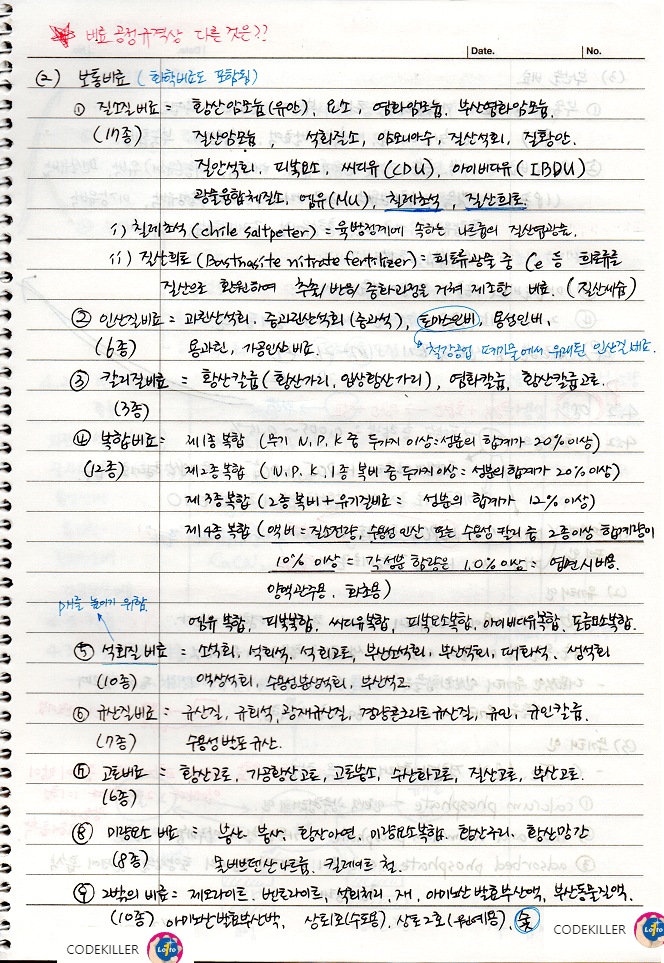 비료공정규격상 다른것은??
Date. No.
(2) 보통비료 (화학비료도 포함됨)
① 질소질비료 = 황산암모늄(유안), 요소, 염화암모늄, 부산염화암모늄,
(17종) 질산암모늄, 석회질소, 암모니아수, 질산석회, 질황안,
질안석회, 피복요소, 씨디유(CDU), 아이비디유(IBDU)
광물융합체질소, 엠유(MU), 칠레초석, 질산희토.
i) 칠레초석(chile saltpeter) = 육방정계에 속하는 나트륨의 질산염광물.
ii) 질산희토(Bastnasite nitrate fertilizer) = 희토류광물 중 Ce 등 희토류를
질산으로 환원하여 추출/반응/중화과정을 거쳐 제조한 비료. (질산세슘)
② 인산질비료 = 과린산석회, 중과린산석회(중과석), 토마스인비, 용성인비,
(6종) 용과린, 가공인산비료. 철강공업 폐기물에서 유래된 인산질비료.
③ 칼리질비료 = 황산칼륨(황산가리, 입상황산가리), 염화칼륨, 황산칼륨고토.
(3종)
④ 복합비료 = 제1종복합 (무기 N, P, K 중 두가지 이상=성분의 합계가 20%이상)
(12종) 제2종복합 (N, P, K, 1종 복비 중 두가지이상=성분의 합계가 20%이상)
제3종복합 (2종 복비+유기질비료 = 성분의 합계가 12% 이상)
제4종복합 (액비=질소전량, 수용성인산 또는 수용성 칼리 중 2종이상 합계량이
10% 이상 = 각성분 함량은 1.0%이상 = 엽면시비용.
양액관주용. 화초용)
엠유 복합, 피복복합, 씨디유복합, 피복요소복합, 아이비디유복합, 도급요소복합.
pH를 높이기 위함
⑤ 석회질비료 = 소석회, 석회석, 석회고토, 부산소석회, 부산석회, 패화석, 생석회
(10종) 액상석회, 수용성분생석회, 부산석고
⑥ 규산질비료 = 규산질, 규회석, 광재규산질, 경량콘크리트규산질, 규인, 규인칼륨.
(7종) 수용성반포규산.
⑦ 고토비료 = 황산고토, 가공황산고토, 고토붕소, 수산화고토, 질산고토, 부산고토.
(6종)
⑧ 미량요소 비료 = 붕산. 붕사, 황산아연, 미량요소복합, 황산구리. 황산망간
(8종) 몰리브덴산나트륨. 킬레이트 철.
⑨ 그밖의 비료 = 제오라이트. 벤토나이트, 석회처리, 재, 아미노산발효부산액, 부산동물질액.
(10종) 아미노산발효부산박, 상토1호(수도용), 상토2호(원예용), 숯
CODEKILLER Lotto CODEKILLER Lotto